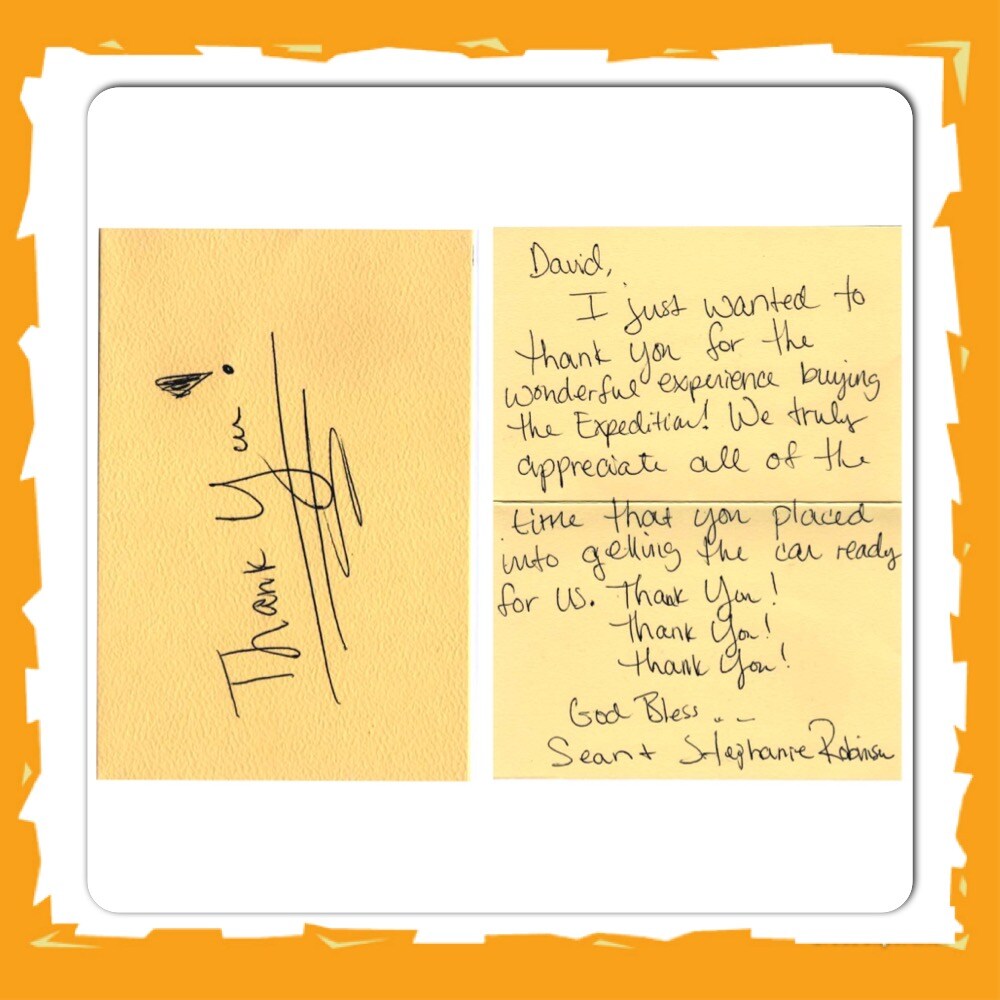 Thank You!
David,
I just wanted to
thank you for the
wonderful experience buying
the Expedition! We truly
appreciate all of the
time that you placed
into getting the car ready
for us. Thank You!
Thank You!
Thank You!
God Bless...
Sean + Stephanie Robinson